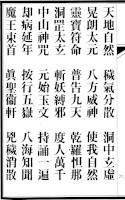 天地自然 穢氣分散 洞中玄虛
晃朗太元 八方威神 使我自然
靈寶符命 普告九天 乾羅怛那
洞罡太玄 斬妖縛邪 度人萬千
中山神咒 元始玉文 持誦一遍
却病延年 按行五嶽 八海知聞
魔王束首 眞聖衞軒 兇穢消散